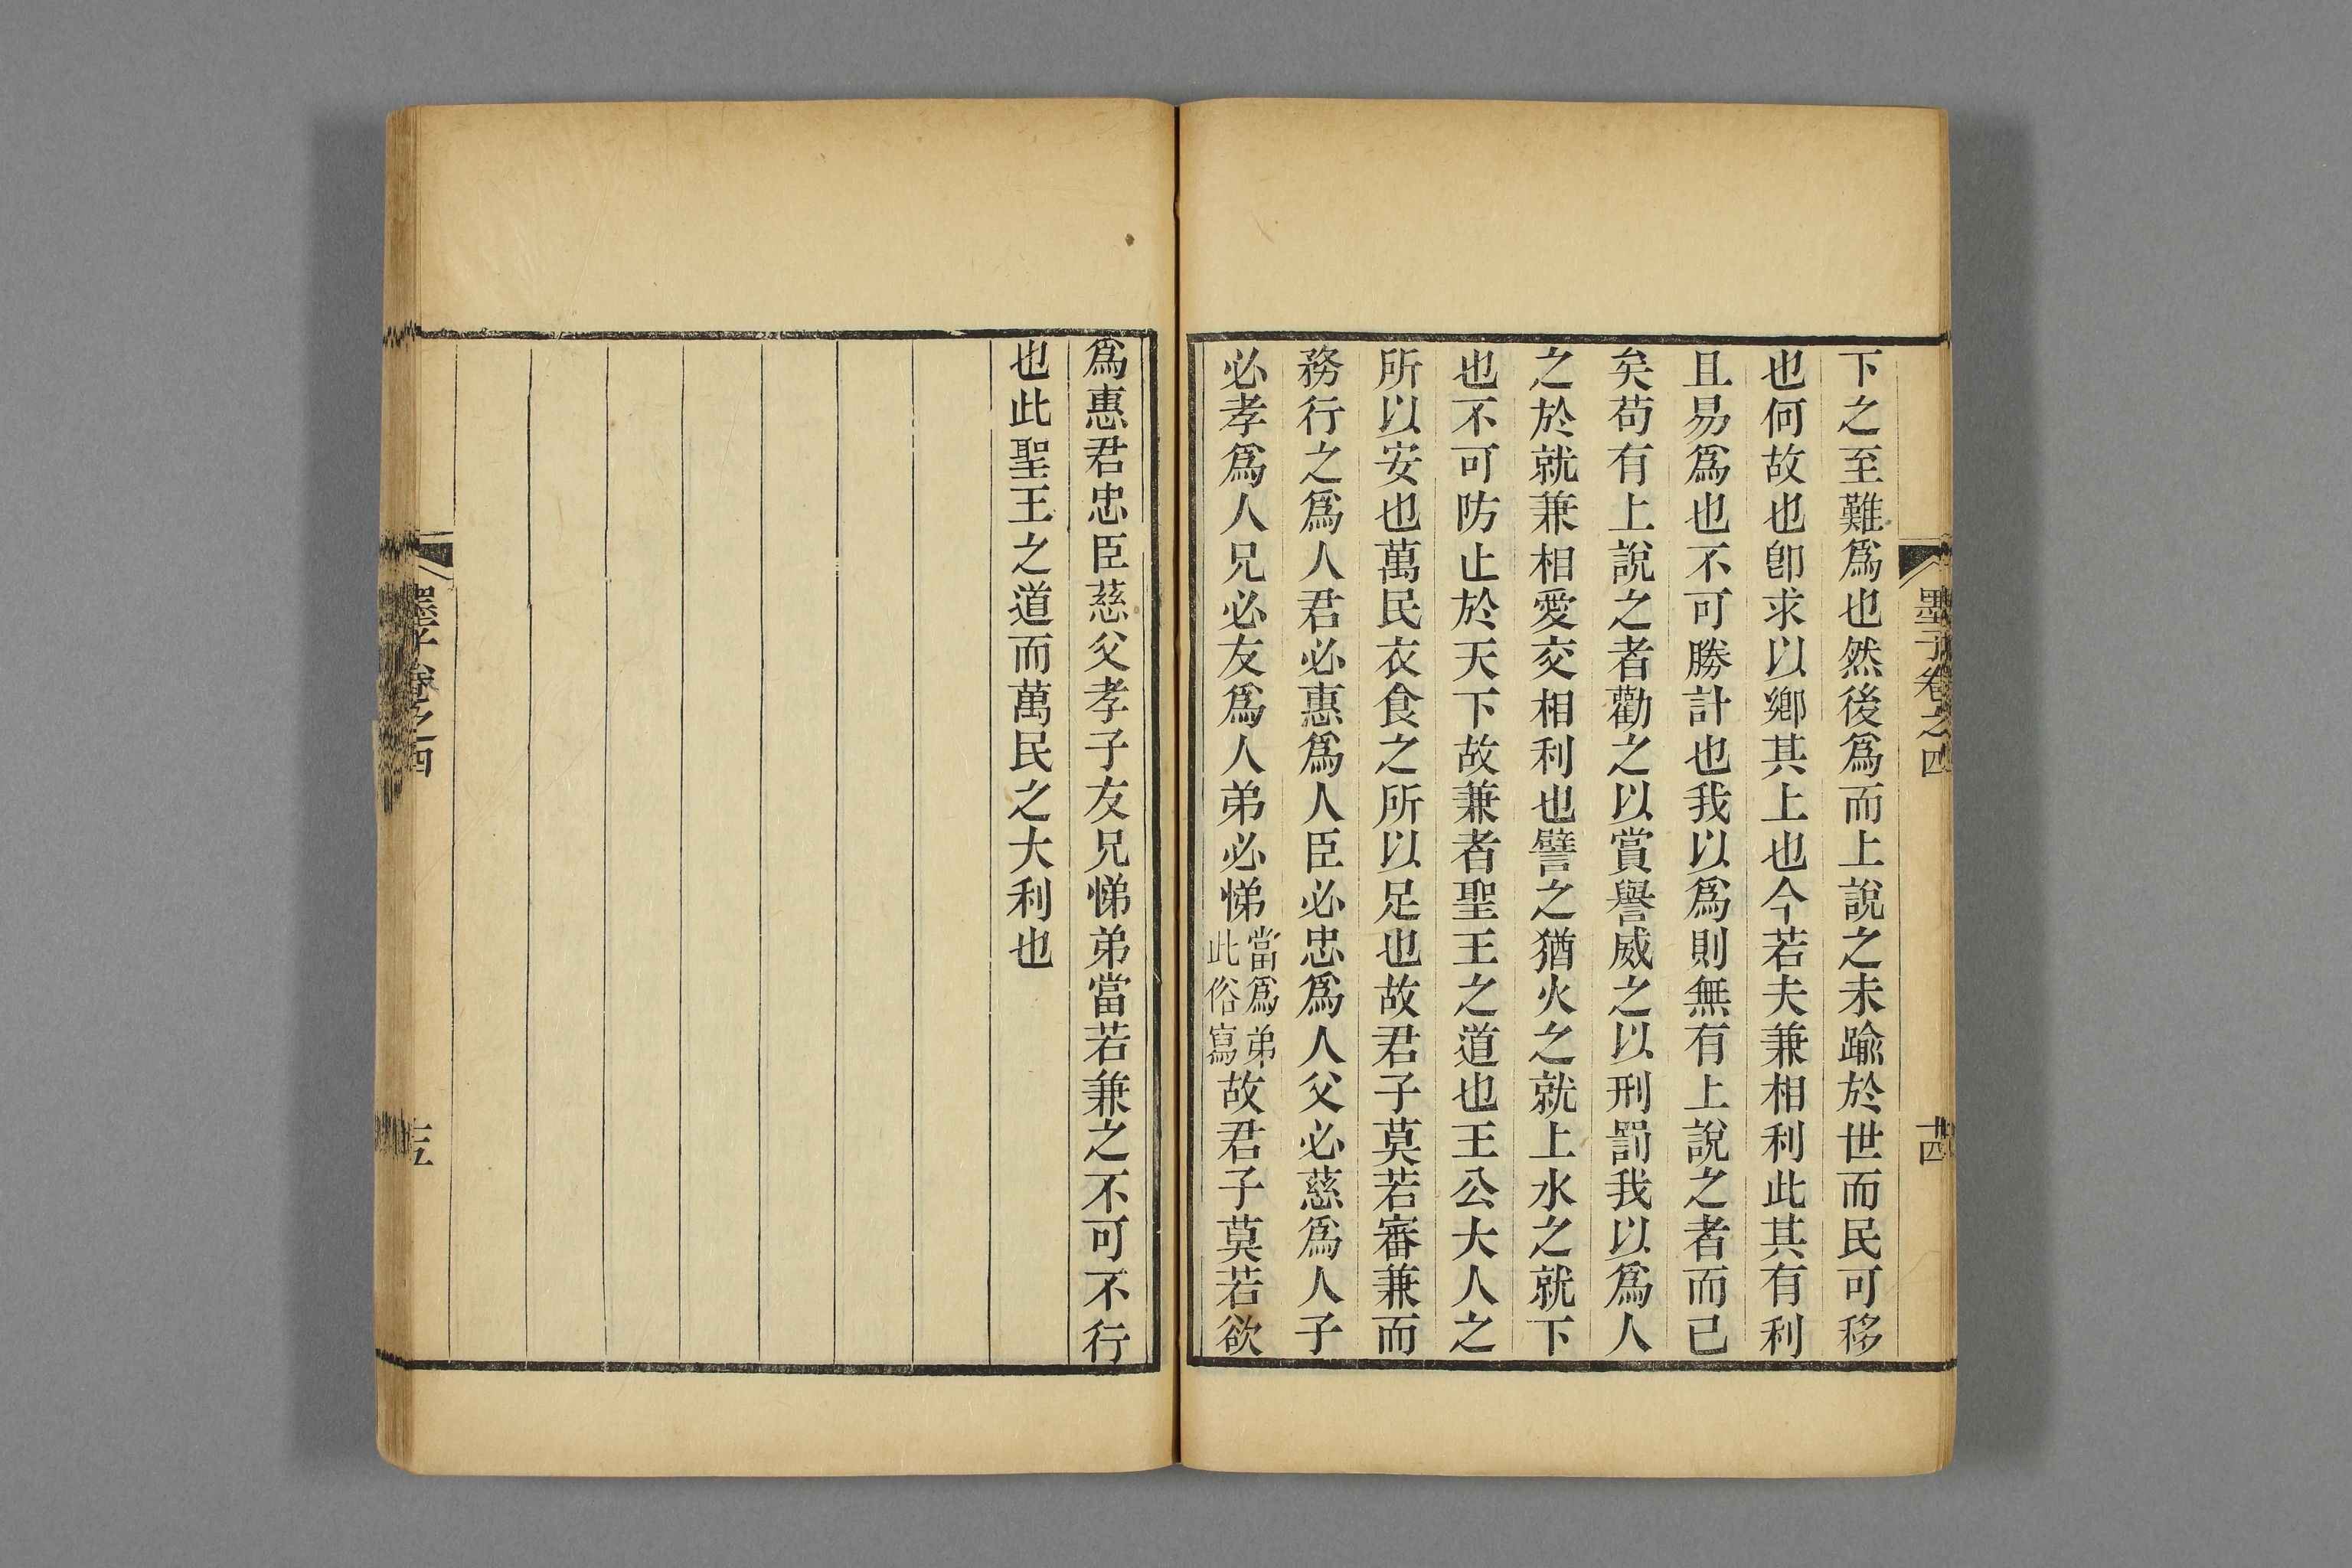 墨子卷之四
十四
下之至難爲也然後爲而上說之未踰於世而民可移
也何故也卽求以鄉其上也今若夫兼相利此其有利
且易爲也不可勝計也我以爲則無有上說之者而已
矣苟有上說之者勸之以賞譽威之以刑罰我以爲人
之於就兼相愛交相利也譬之猶火之就上水之就下
也不可防止於天下故兼者聖王之道也王公大人之
所以安也萬民衣食之所以足也故君子莫若審兼而
務行之爲人君必惠爲人臣必忠爲人父必慈爲人子
必孝爲人兄必友爲人弟必悌當爲弟此俗寫故君子莫若欲
爲惠君忠臣慈父孝子友兄悌弟當若兼之不可不行
也此聖王之道而萬民之大利也
墨子卷之四